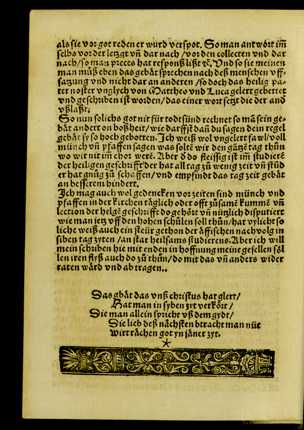 als sie vor got reden er würd verspot. So man antwort im
selbs vor der letzgt vñ dar nach / vor den collecten vnd dar
nach / so man preces hat responß lißt ꝛc. Vnd so sie meinen
man müß eben das gebät sprechen nach deß menschen vff-
satzung vnd nicht dar an anderen / so doch das heilig pa-
ter noster vnglych von Mattheo vnd Luca gelert gebettet
vnd geschriben ist worden / das einer wort setzt die der and
vßlaßt.
So nun solichs got nit für todtsünd rechnet so mā sein ge-
bät andert on boßheit / wie darffst dañ du sagen dein regel
gebät sy so hoch gebotten. Ich weiß wol vngelert faw voll
münch vñ pfaffen sagen was solte wir den gātzē tag thün
wo wir nit im chor werē. Aber d do fleissig ist im studierē
der heiligen geschrifft der hat all tag zü wenig zeit vñ stūd
er hat gnüg zü schaffen / vnd empfindt das tag zeit gebät
an besserem hindert.
Ich mag auch wel gedencken vor zeiten sind münch vnd
pfaffen in der kirchen täglich oder offt zusamē kummē vñ
lection der helgē geschrifft do gehöt vñ nützlich disputiert
wie man ietz vff den hohen schülen soll thün / hat vylicht so
liche weiß auch ein steür gethon der äffischen nachvolg in
siben tag zyten / an stat heilsams studierens. Aber ich will
mein schriben hie mit enden in hoffnung meine gesellen söl
len iren flyß auch do zü thün / do mit das vñ anders wider
raten wärd vnd ab tragen..
Das gbät das vnß christus hat glert /
Hat man in syben zyt verkört /
Die man allein spricht vß dem gydt /
Die lieb deß nächsten btracht man nüt
Wirt rächen got yn jäner zyt.